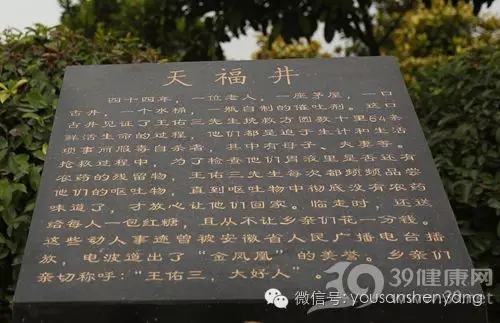 天福井
四十四年，一位老人，一座茅屋，一口
古井，一个水桶，一瓶自制的催吐剂。这口
古井见证了王佑三先生挽救方圆数十里64条
鲜活生命的过程，他们都是迫于生计和生活
琐事而服毒自杀者，其中有母子、夫妻等。
抢救过程中，为了检查他们胃液里是否还有
农药的残留物，王佑三先生每次都频频品尝
他们的呕吐物，直到呕吐物中彻底没有农药
味道了，才放心让他们回家。临走时，还送
给每人一包红糖，且从不让乡亲们花一分钱。
这些动人事迹曾被安徽省人民广播电台播
放，电波道出了“金凤凰”的美誉。乡亲们
亲切称呼：“王佑三，大好人”。
39健康网
微信号: yousanshenyang